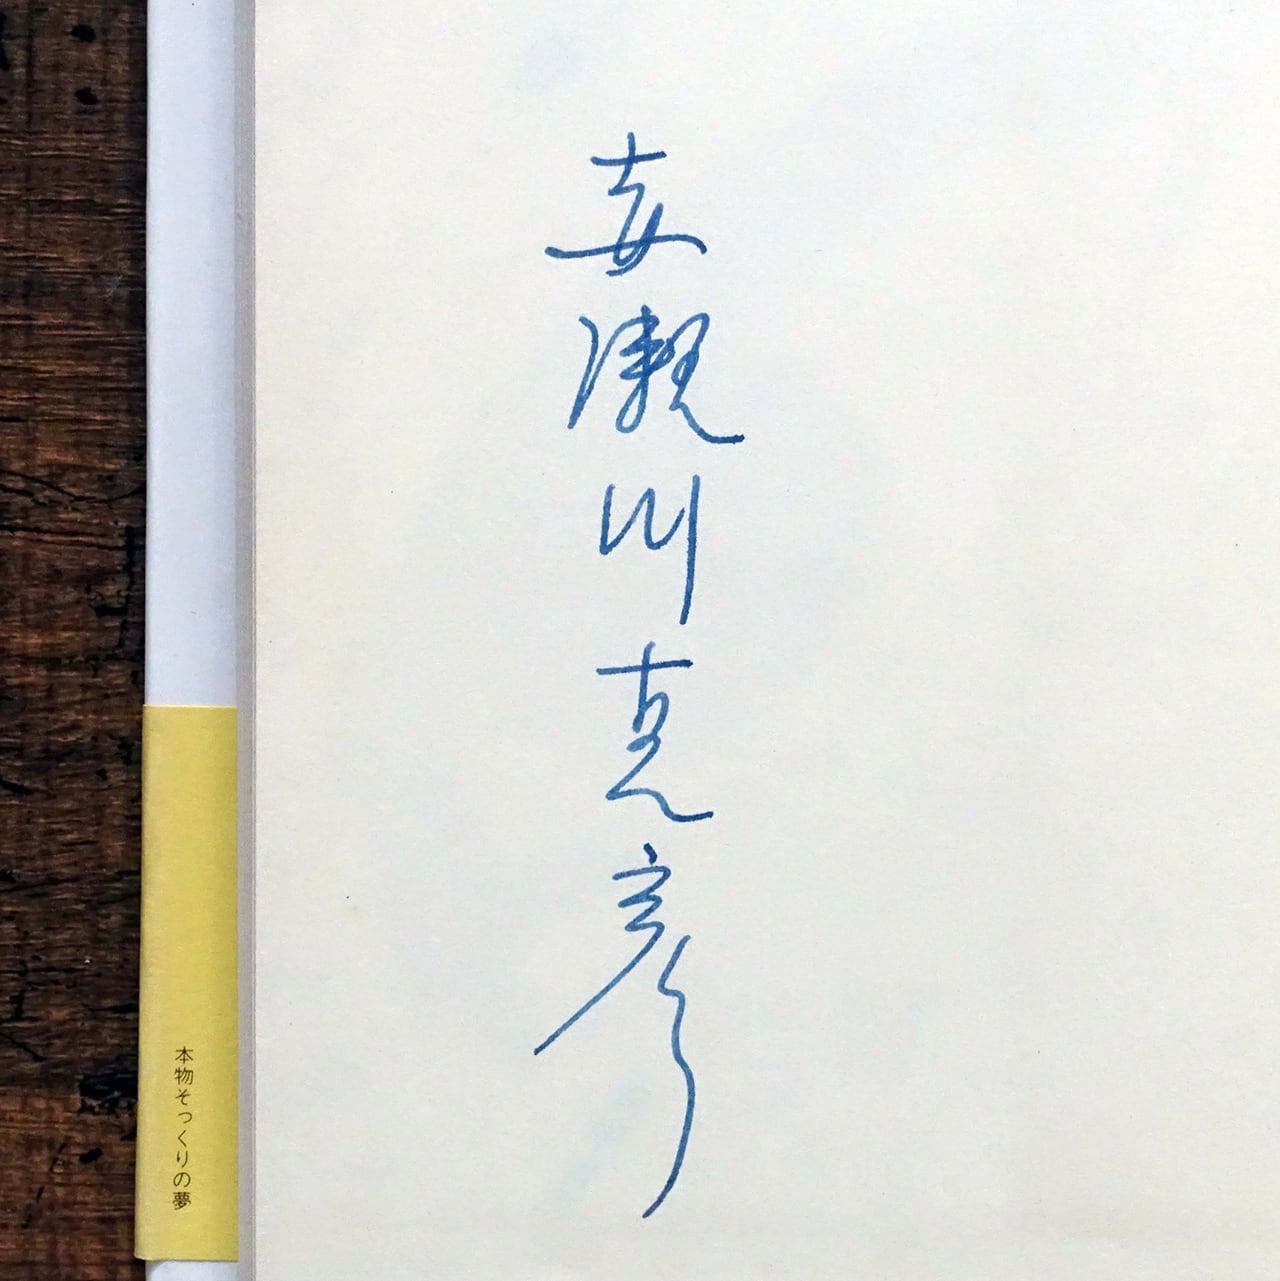 赤瀬川克彦
本物そっくりの夢